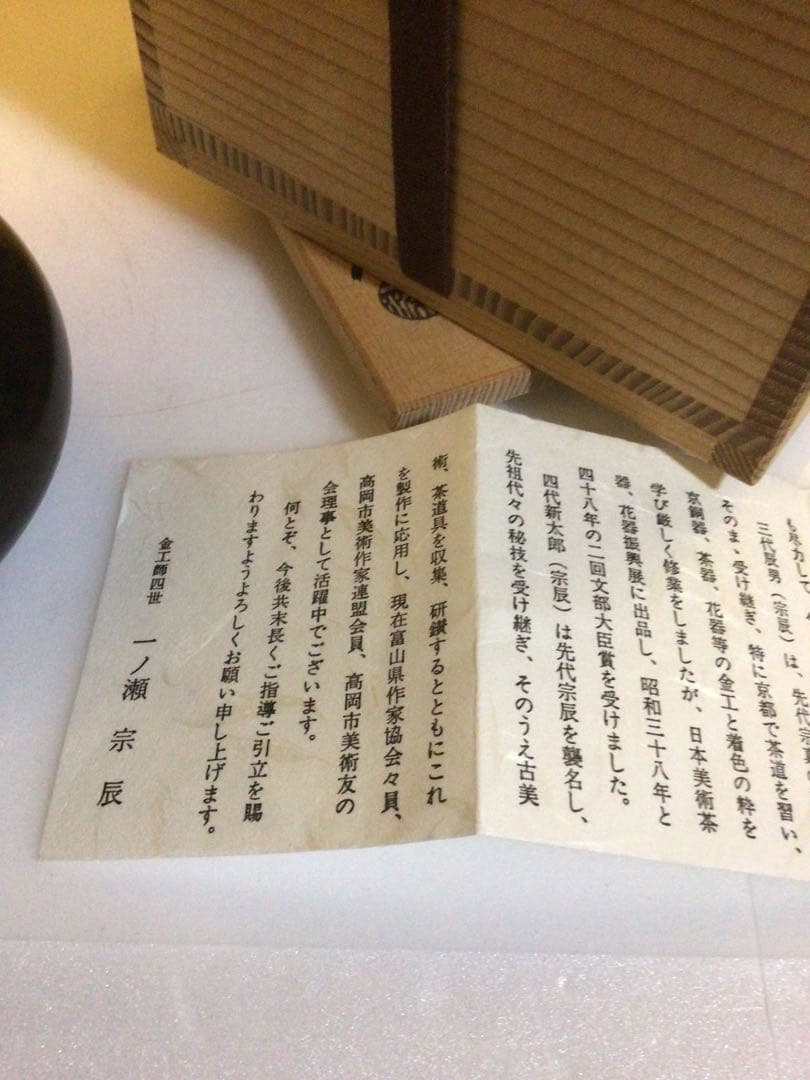 も尽力して
三代辰男（宗辰）は、先代宗真
そのまゝ受け継ぎ、特に京都で茶道を習い、
京銅器、茶器、花器等の金工と着色の粋を
学び厳しく修業をしましたが、日本美術茶
器、花器振興展に出品し、昭和三十八年と
四十八年の二回文部大臣賞を受けました。
四代新太郎（宗辰）は先代宗辰を襲名し、
先祖代々の秘技を受け継ぎ、そのうえ古美
術、茶道具を収集、研鑚するとともにこれ
を製作に応用し、現在富山県作家協会々員、
高岡市美術作家連盟会員、高岡市美術友の
会理事として活躍中でございます。
何とぞ、今後共末長くご指導ご引立を賜
わりますようよろしくお願い申し上げます。
金工師四世 一ノ瀬宗辰